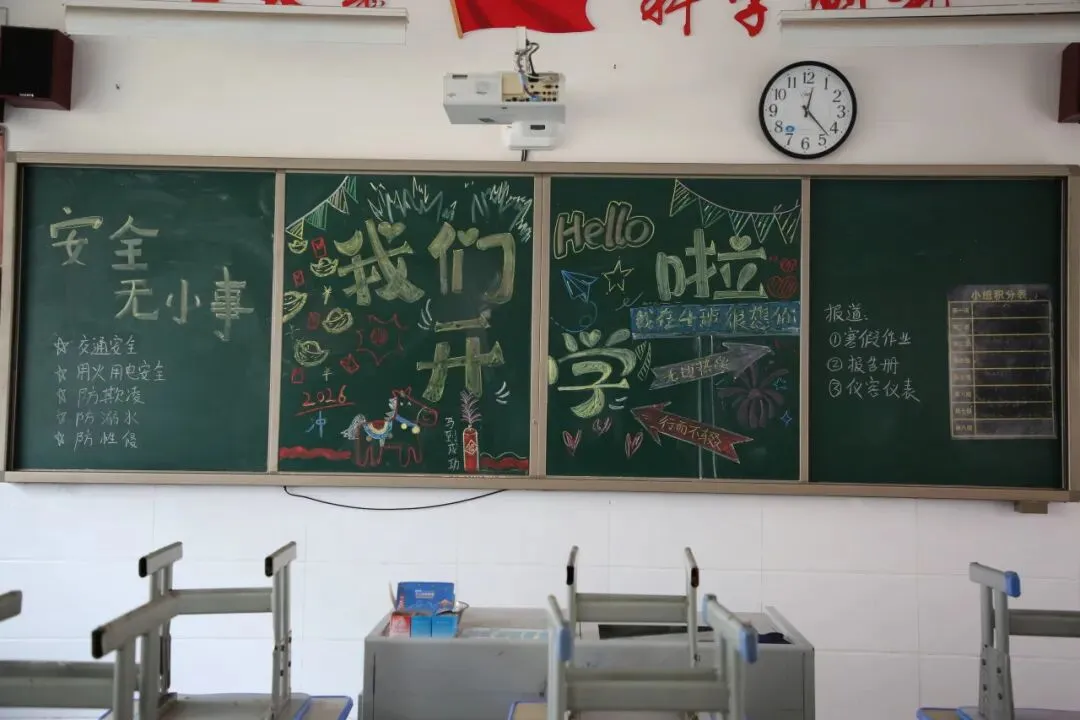 科学
安全
无小事
☆ 交通安全
☆ 用火用电安全
☆ 防欺凌
☆ 防溺水
☆ 防性侵
我们
开
2026
冲
马到成功
Hello
啦
我在4班很想你
学
行而不辍
报道:
①寒假作业
②报告册
③仪容仪表
小组积分表
12
1
2
3
4
5
6
7
8
9
10
11